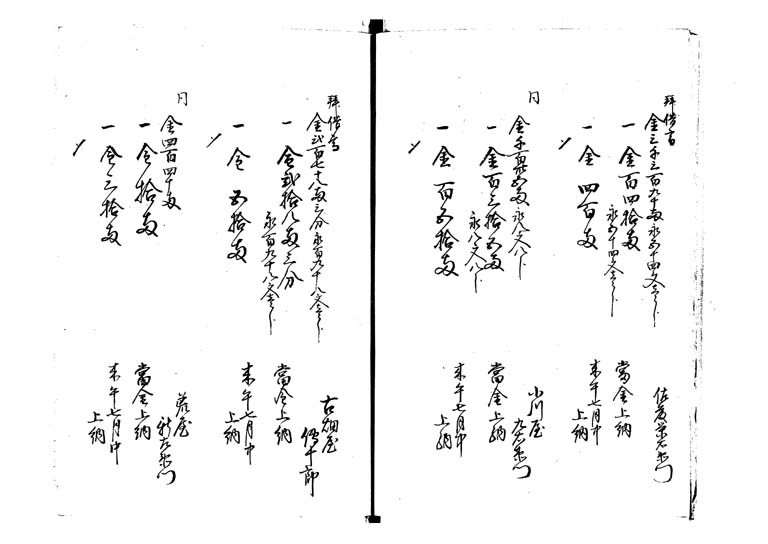 拝借高
金三千三百九十両永五十四文
佐藤栄左衛門
一金百四拾両
永五十四文
當金上納
一金四百両
来午七月中
上納
〆
同
金千百五両永八文八分
小川屋
九左衛門
一金百三拾五両
永八文八分
當金上納
一金百五拾両
来午七月中
上納
〆
拝借高
金弐百七十八両三分永百九十八文
古畑屋
傳十郎
一金弐拾八両三分
永百九十八文
當金上納
一金五拾両
来午七月中
上納
〆
同
金四百四十両
屋
新左衛門
一金拾両
當金上納
一金三拾両
来午七月中
上納
〆